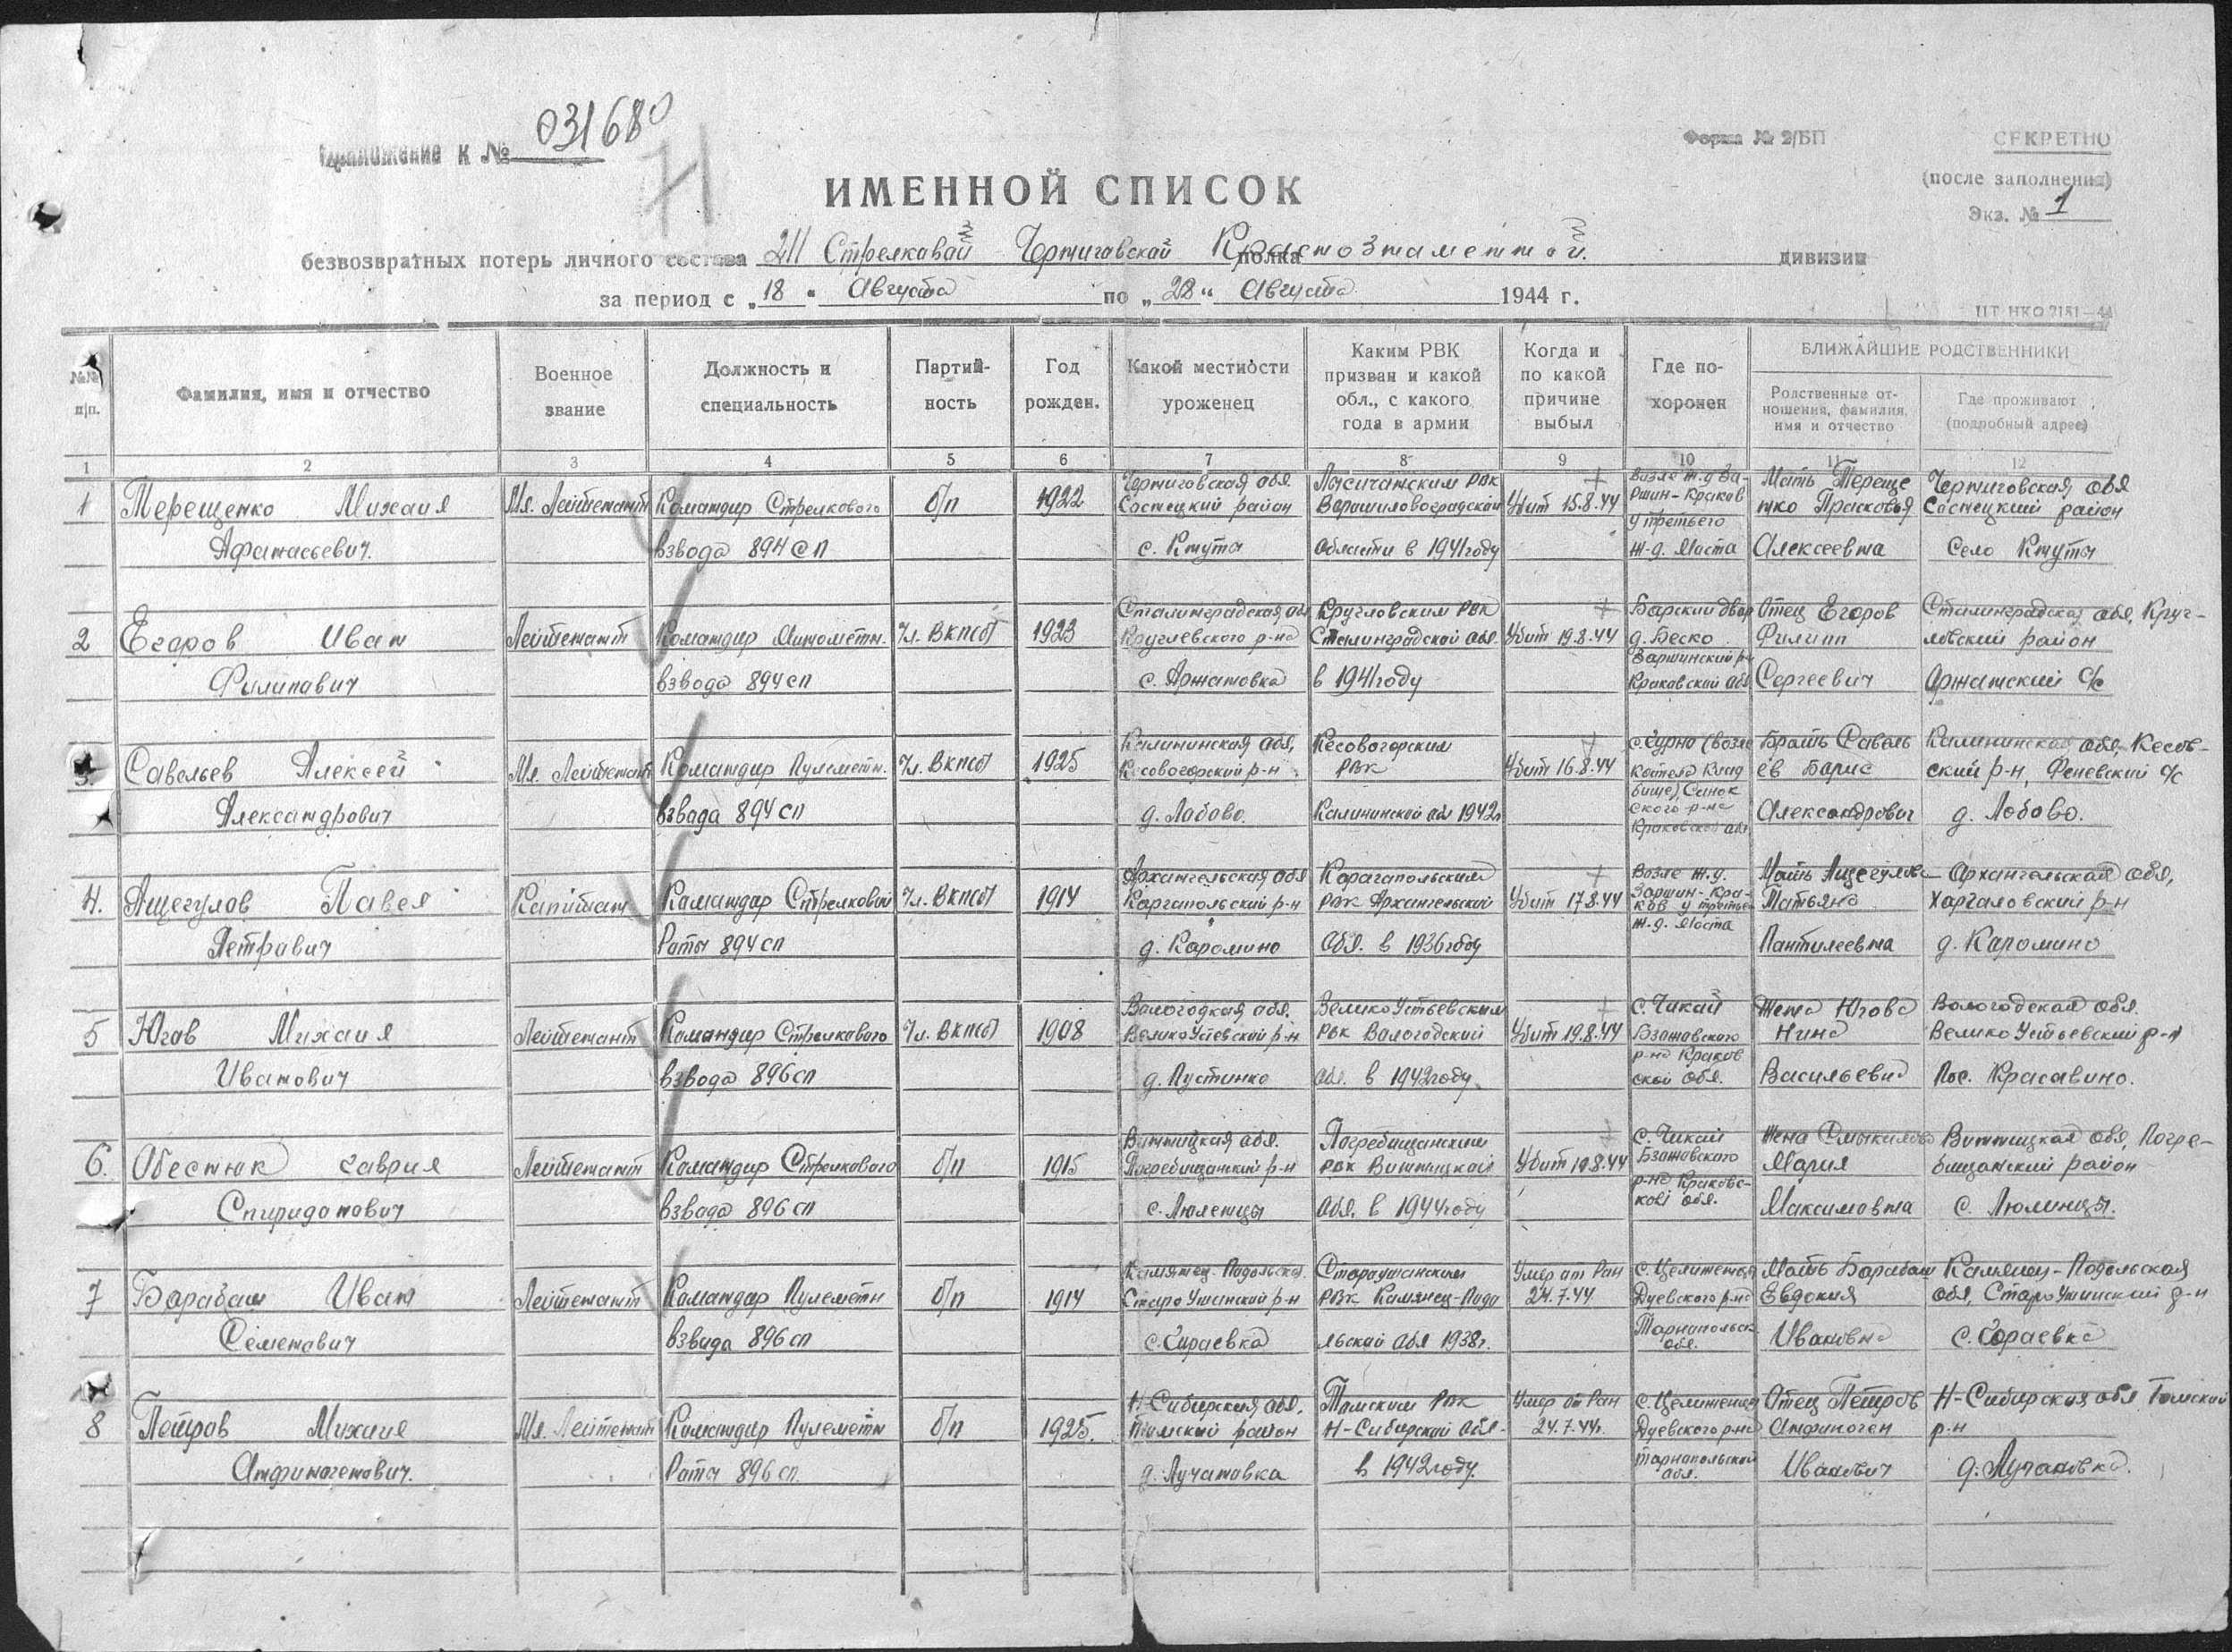 Приложение к № 031680
71
Форма № 2/БП
СЕКРЕТНО
(после заполнения)
Экз. № 1
ИМЕННОЙ СПИСОК
безвозвратных потерь личного состава 211 Стрелкавай Чернигавской полка Краснознаменной. дивизии
за период с „18“ Августа по „28“ Августа 1944 г.
ЦТ НКО 2181—44
№№ п/п.
Фамилия, имя и отчество
Военное звание
Должность и специальность
Партийность
Год рожден.
Какой местности уроженец
Каким РВК призван и какой обл., с какого года в армии
Когда и по какой причине выбыл
Где похоронен
БЛИЖАЙШИЕ РОДСТВЕННИКИ
Родственные отношения, фамилия, имя и отчество
Где проживают (подробный адрес)
1 2 3 4 5 6 7 8 9 10 11 12
1 Терещенко Михаил Афанасьевич.
Мл. Лейтенант
Командир Стрелкового взвода 894 СП
б/п
1922
Черниговская обл. Соснецкий район с. Кнуты
Лысичанским РВК Ворошиловоградской области в 1941 году
Убит 15.8.44
Возле ж.д За-
ршин-Краков
у третьего
ж-д. Моста
Мать Тереще
нко Прасковья
Алексеевна
Черниговская обл
Соснецкий район
Село Кнуты
2 Егоров Иван Филипавич
Лейтенант
Командир Минометн. взвода 894 сп
Чл. ВКП(б)
1923
Сталинградская обл Круглевского р-на с. Аржановка
Кругловским РВК Сталинградской обл. в 1941 году
Убит 19.8.44
Барский двор
д. Беско
Заршинский р-н
Краковской обл
Отец Егоров
Филипп
Сергеевич
Сталинградская обл, Круг-
ловский район
Аржанский с/с
3. Савельев Алексей Александрович
Мл. Лейтенант
Командир Пулеметн. взвада 894 сп
Чл. ВКП(б)
1925
Калининская обл, Кесовогорский р-н д. Лабово.
Кесовогорским РВК Калининской обл 1942г
Убит 16.8.44
(возле
Санок
ского р-на
Краковской обл
Брать Савель
ев Борис
Александрович
Калининская обл, Кесов-
ский р-н, Феневский с/с
д. Лобово.
4. Ащегулов Павел Петравич
Капитан
Командир Стрелковой Роты 894 сп
Чл. ВКП(б)
1914
Архангельская обл Каргапольский р-н д. Каромино
Карагапольским РВК Архангельской Обл. в 1936 году
Убит 17.8.44
Возле ж.д.
Заршин-Кра-
ков у третье
ж.д. Моста
Мать Ащегулова
Татьяна
Пантилеевна
Архангельская обл,
Харгаловский р-н
д. Каромино
5 Югов Михаил Иванович
Лейтенант
Командир Стрелкового взвода 896 сп
Чл. ВКП(б)
1908
Вологодкая обл. ВеликоУстевский р-н д. Пустынко
ВеликоУстьевским РВК Вологодский обл. в 1942 году
Убит 19.8.44
с. Чикай
Бзазавского
р-на Краков
ской обл.
Жена Югова
Нина
Васильевна
Вологодская обл.
ВеликоУстьевский р-н
Пос. Красавино.
6. Обестюк Гаврил Спиридонович
Лейтенант
Командир Стрелкового взвада 896 сп
б/п
1915
Винницкая обл. Погребищанский р-н с. Люленцы
Погребищанским РВК Винницкой Обл. в 1944 году
Убит 19.8.44
с. Чикай
Бзазавского
р-на Краковс-
кой обл.
Жена
Мария
Максимовна
Винницкая обл, Погре-
бищанский район
с. Люлинцы.
7 Барабаш Иван Семенович
Лейтенант
Командир Пулеметн взвада 896 сп
б/п
1914
Камянец-Подольская Старо Ушинский р-н с. Гараевка
Староушанским РВК Камянец-Пода льской обл 1938г.
Умер от Ран 24.7.44
Дуевского р-на
Тарнапольск
обл.
Мать Барабаш
Евдокия
Ивановна
Камянец-Подольская
обл, Старо Ушинский р-н
с. Гораевка
8 Петров Михаил Анфиногенович.
Мл. Лейтенант
Командир Пулеметн Роты 896 сп.
б/п
1925.
Н-Сибирская обл, Томский район д. Лучановка
Томским РВК Н-Сибирской обл. в 1942 году.
Умер от Ран 24.7.44г.
Дуевского р-на
Тарнапольской
обл.
Отец Петров
Анфиноген
Иванович
Н-Сибирская обл. Томский
р-н
д. Лучановка.